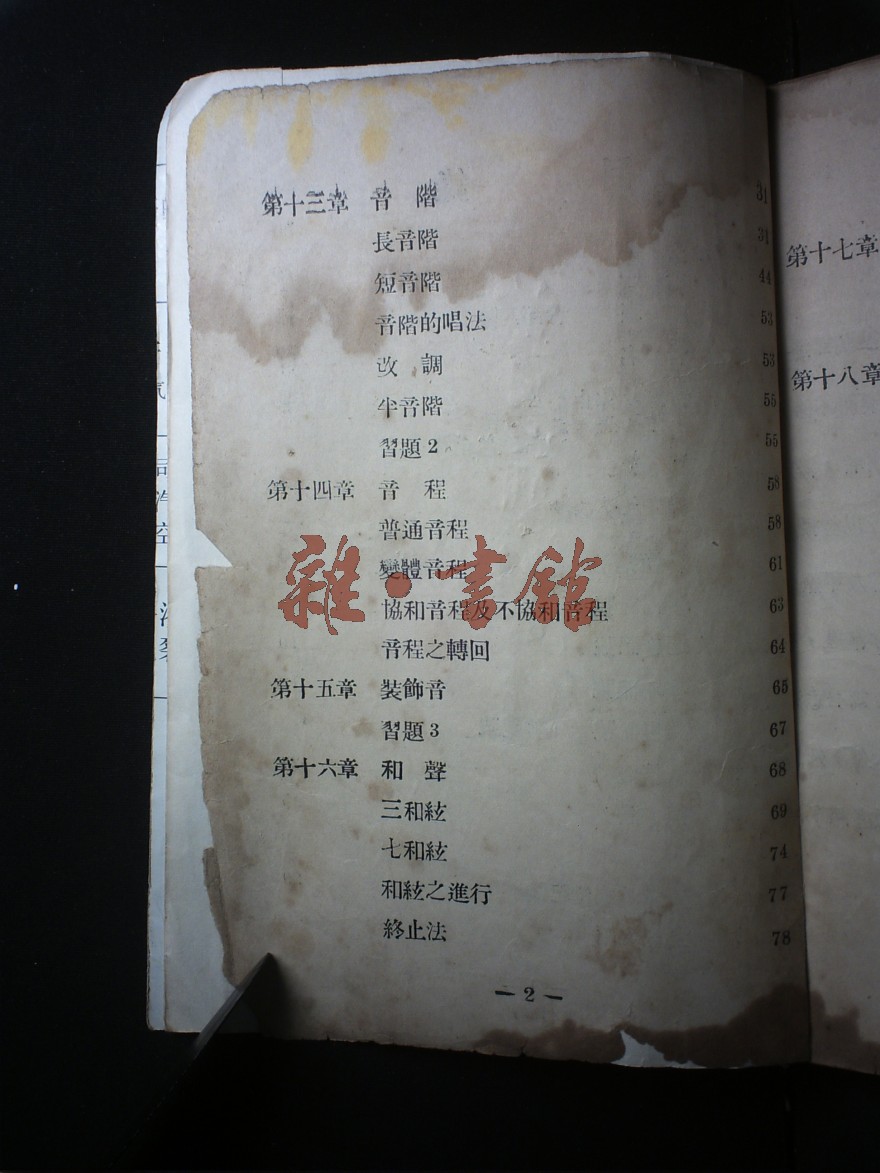 第十三章 音 階 31
長音階 31
短音階 44
音階的唱法 53
改 調 53
半音階 55
習題2 55
第十四章 音 程 58
普通音程 58
變體音程 61
協和音程及不協和音程 63
音程之轉回 64
第十五章 裝飾音 65
習題3 67
第十六章 和 聲 68
三和絃 69
七和絃 74
和絃之進行 77
終止法 78
— 2 —
第十七章
第十八章
雜·書館